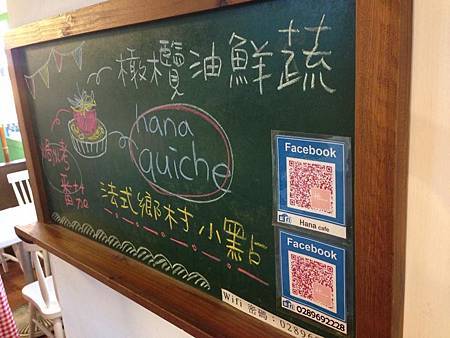 橄欖油鮮蔬
hana
quiche
番茄
法式鄉村小點
Facebook
Hana cafe
Facebook
0289692228
Wifi 密碼：0289